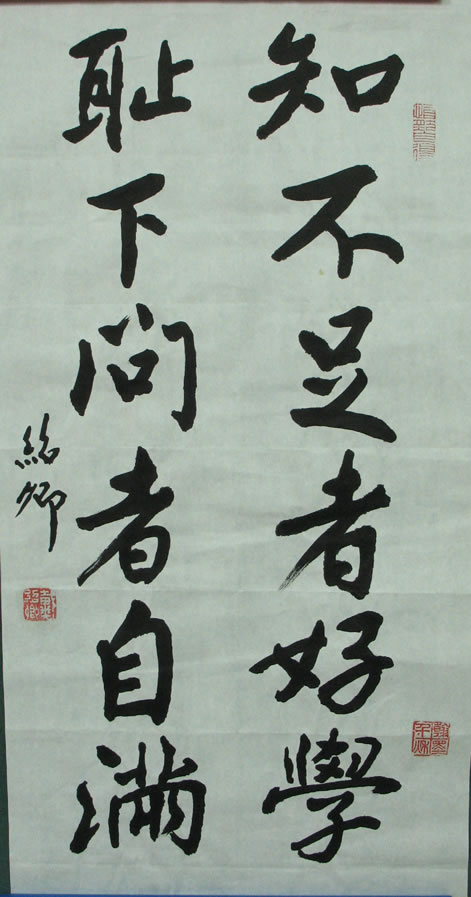 知不足者好學
耻下問者自滿
紹卿